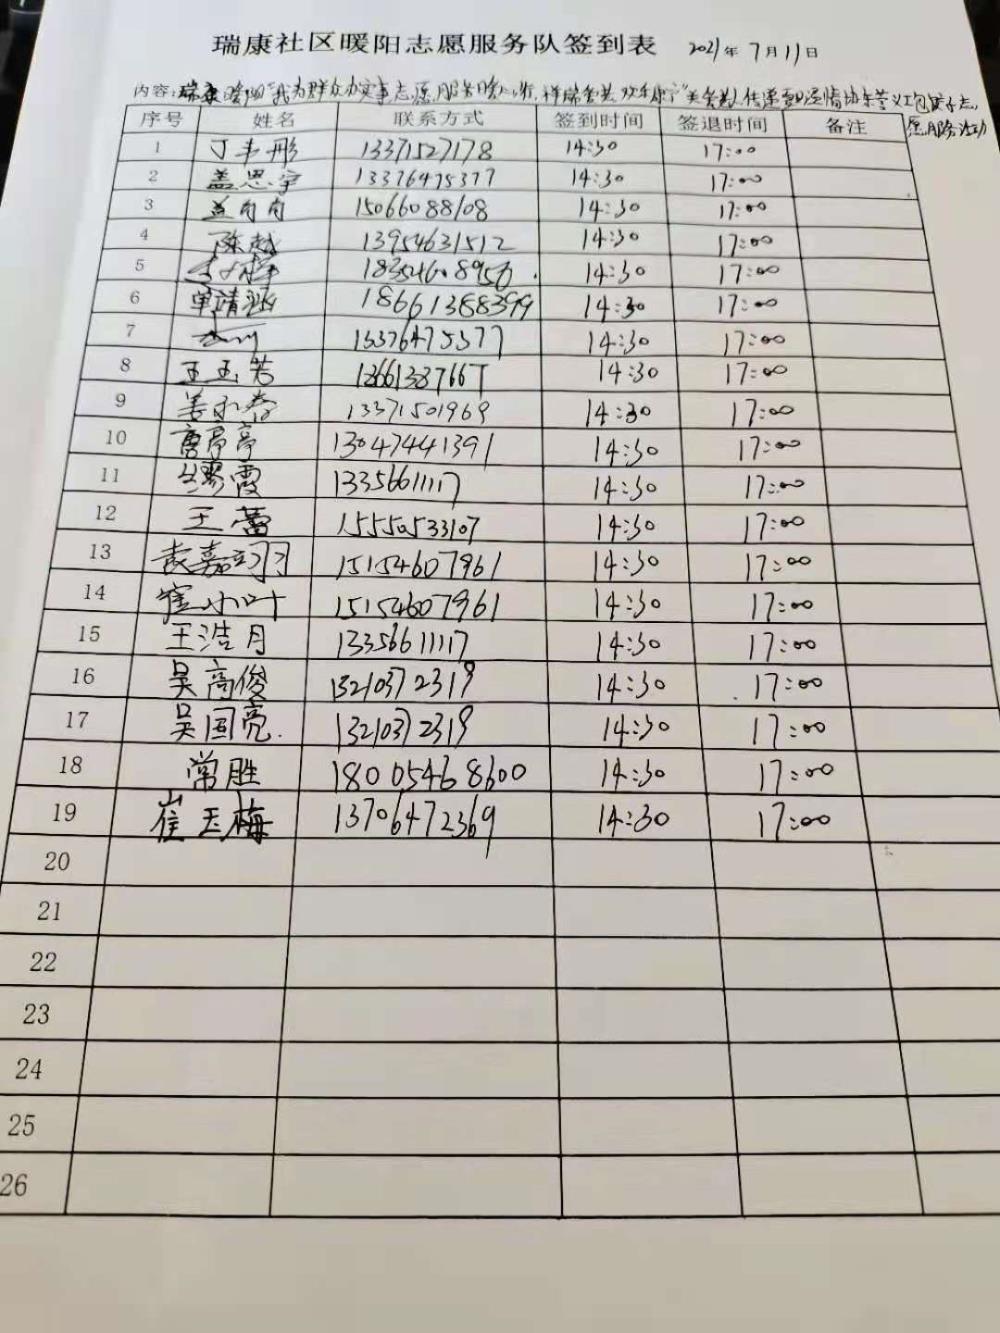 瑞康社区暖阳志愿服务队签到表 2021年7月11日
内容:瑞康暖阳"我为群众办实事志愿服务
愿服务活动
序号 姓名 联系方式 签到时间 签退时间 备注
1 丁韦彤 13371527178 14:30 17:00
2 盖思宇 13376475377 14:30 17:00
3 15066088108 14:30 17:00
4 陈越 13954631512 14:30 17:00
5 18354608956 14:30 17:00
6 单靖涵 18661388399 14:30 17:00
7 13376475377 14:30 17:00
8 王玉芳 14:30 17:00
9 姜永春 13371501969 14:30 17:00
10 唐亭亭 13047441391 14:30 17:00
11 霞 13356611117 14:30 17:00
12 王蕾 15550533107 14:30 17:00
13 袁嘉羽 15154607961 14:30 17:00
14 崔小叶 15154607961 14:30 17:00
15 王浩月 13356611117 14:30 17:00
16 吴高俊 13210372319 14:30 17:00
17 吴国亮 13210372319 14:30 17:00
18 常胜 18005468600 14:30 17:00
19 崔玉梅 13706472369 14:30 17:00
20
21
22
23
24
25
26